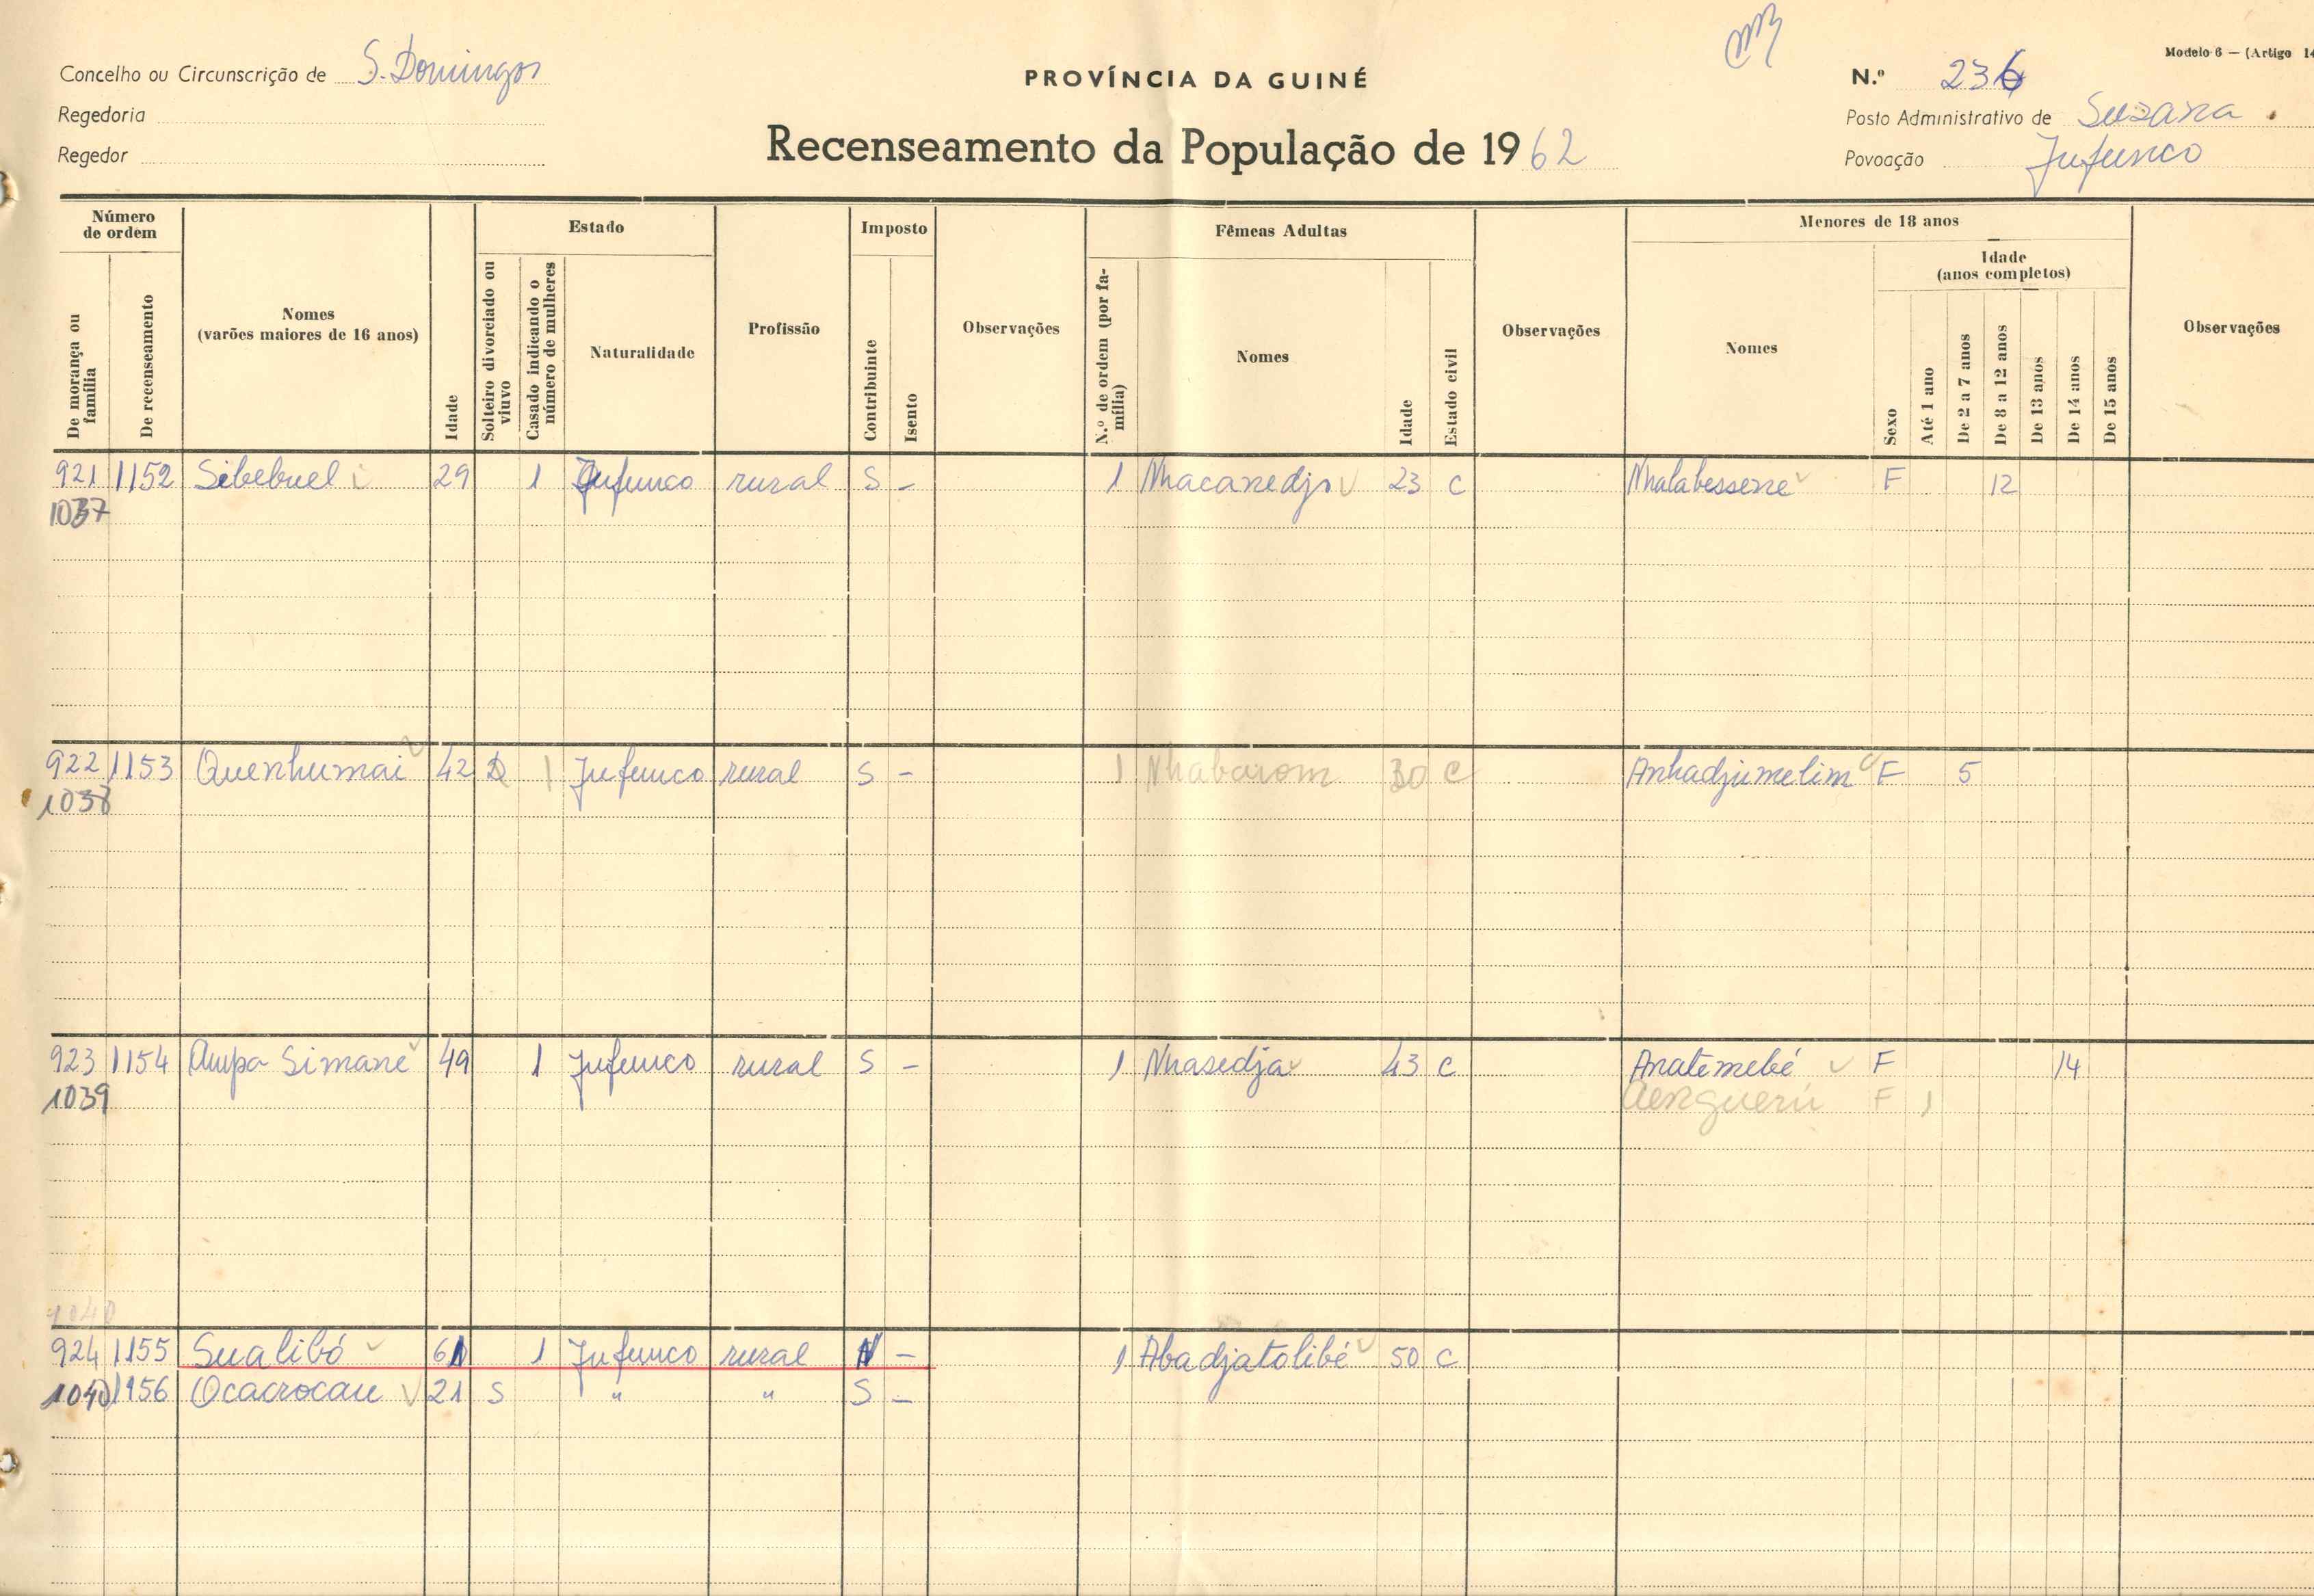 Modelo 6 — (Artigo 14
Concelho ou Circunscrição de S. Domingos
PROVÍNCIA DA GUINÉ
N.º 236
Regedoria
Posto Administrativo de Suzana
Regedor
Recenseamento da População de 1962
Povoação Jufunco
Número de ordem
De morança ou família
De recenseamento
Nomes
(varões maiores de 16 anos)
Idade
Estado
Solteiro divorciado ou viuvo
Casado indicando o número de mulheres
Naturalidade
Profissão
Imposto
Contribuinte
Isento
Observações
Fêmeas Adultas
N.º de ordem (por família)
Nomes
Idade
Estado civil
Observações
Menores de 18 anos
Nomes
Sexo
Idade
(anos completos)
Até 1 ano
De 2 a 7 anos
De 8 a 12 anos
De 13 anos
De 14 anos
De 15 anos
Observações
921 1152 Sibebuel 29 1 Jufunco rural S – 1 Nhacanedjo 23 C Nhalabessene F 12
1037
922 1153 Quenhumai 42 D 1 Jufunco rural S – 1 Nhabarom 30 C Anhadjumelim F 5
1038
923 1154 Ampa Simané 49 1 Jufunco rural S – 1 Nhasedja 43 C Anatemebé F 14
1039 Aenguerú F 1
1040
924 1155 Sualibó 61 1 Jufunco rural N – 1 Abadjatolibé 50 C
1040 1156 Ocacrocau 21 S " " S –